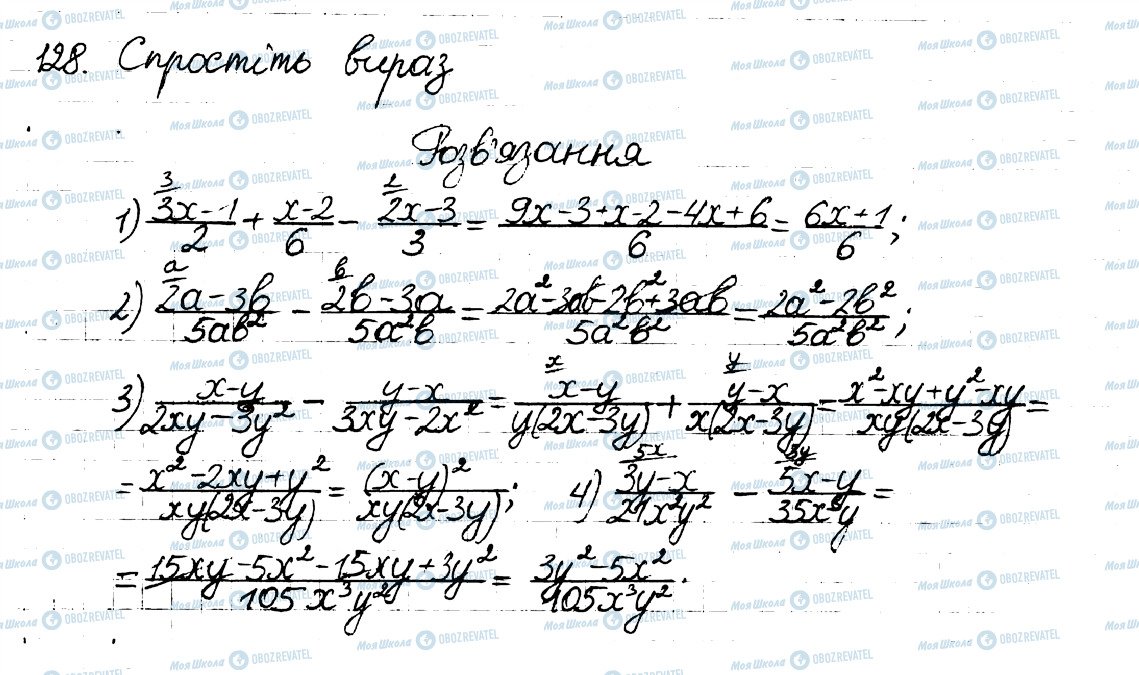 128. Спростіть вираз
Розв'язання
1) (3x-1)/2 + (x-2)/6 - (2x-3)/3 = (9x-3+x-2-4x+6)/6 = (6x+1)/6;
2) (2a-3b)/(5ab²) - (2b-3a)/(5a²b) = (2a²-3ab-2b²+3ab)/(5a²b²) = (2a²-2b²)/(5a²b²);
3) (x-y)/(2xy-3y²) - (y-x)/(3xy-2x²) = (x-y)/(y(2x-3y)) + (y-x)/(x(2x-3y)) = (x²-xy+y²-xy)/(xy(2x-3y)) =
= (x²-2xy+y²)/(xy(2x-3y)) = (x-y)²/(xy(2x-3y)); 4) (3y-x)/(21x²y²) - (5x-y)/(35x³y) =
= (15xy-5x²-15xy+3y²)/(105x³y²) = (3y²-5x²)/(105x³y²).